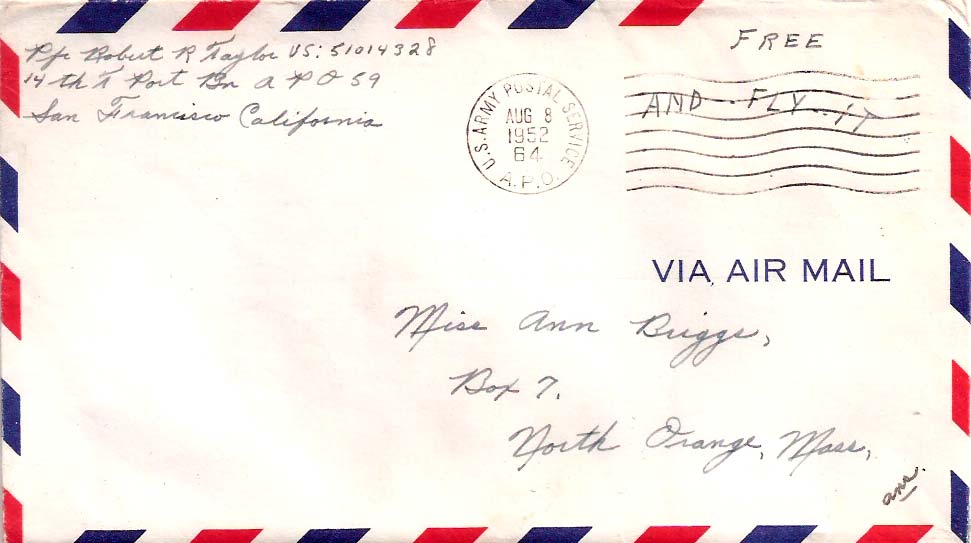 Pfc Robert R Taylor US: 51014328
14th T Port Bn A P O 59
San Francisco California
FREE
AND FLY IT
U.S. ARMY POSTAL SERVICE
AUG 8
1952
64
A.P.O.
VIA AIR MAIL
Miss Ann Briggs,
Box 7.
North Orange, Mass,
ans.